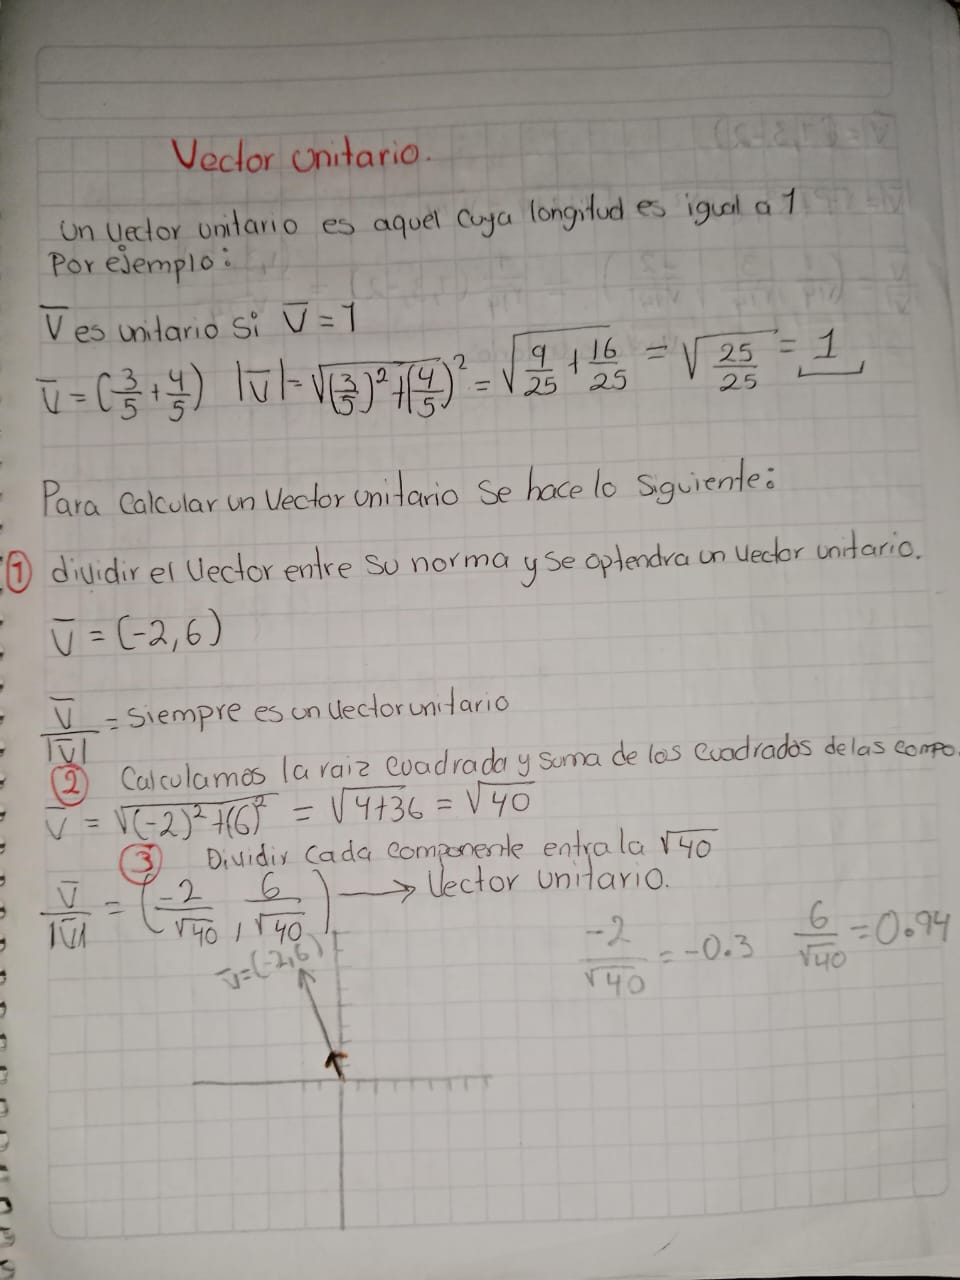 Vector unitario.
Un vector unitario es aquel cuya longitud es igual a 1
Por ejemplo:
V̅ es unitario si V̅ = 1
V̅ = (3/5 + 4/5) |V̅| = √(3/5)² + (4/5)² = √9/25 + 16/25 = √25/25 = 1
Para calcular un vector unitario se hace lo siguiente:
① dividir el vector entre su norma y se optendra un vector unitario.
V̅ = (-2,6)
V̅/|V̅| = siempre es un vector unitario
② Calculamos la raiz cuadrada y suma de los cuadrados de las compo.
V̅ = √(-2)² + (6)² = √4+36 = √40
③ Dividir cada componente entra la √40
V̅/|V̅| = (-2/√40 , 6/√40) → Vector unitario.
-2/√40 = -0.3 6/√40 = 0.94
V̅=(-2,6)